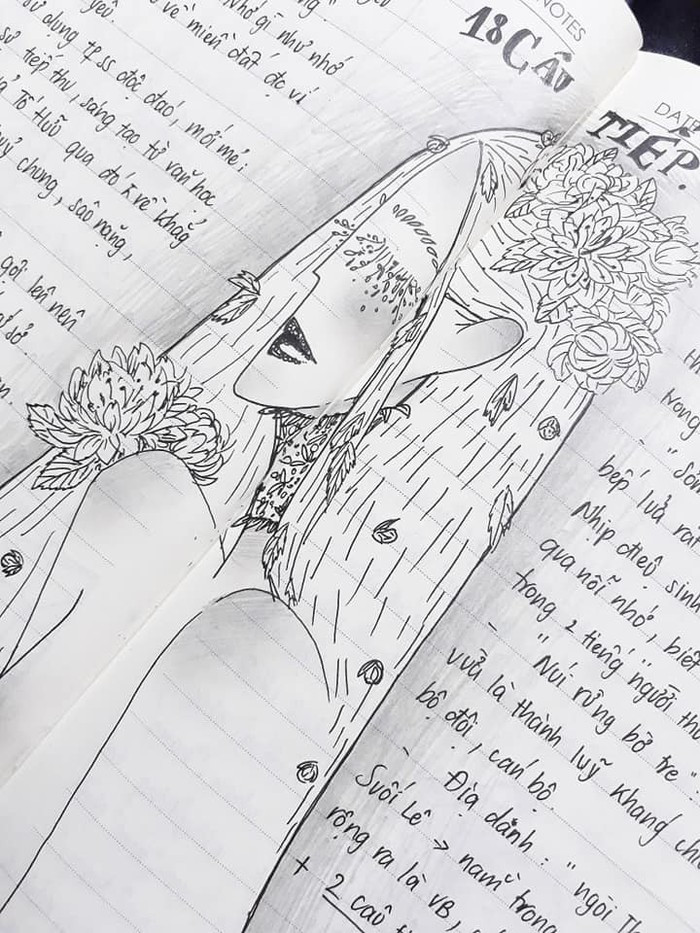 Nhớ gì như nhớ
yêu
về miền đất đc ví
sử dụng tp ss độc đáo, mới mẻ;
sự tiếp thu, sáng tạo từ văn học
Tố Hữu qua đó k vẽ khắg
thuỷ chung, sâu nặng,
gợi lên nên
NOTES
18 CÂU
DATE
TIẾP.
bếp lửa
Nhịp điệu sinh
qua nỗi nhớ, biết
trong 2 tiếng "người thư
- "Núi rừng bờ tre":
vừa là thành luỹ khang ch
bộ đội, cán bộ.
- Địa dảnh: "ngòi Th
Suối Lê > nằm trong
rộng ra là VB,
+ 2 câu